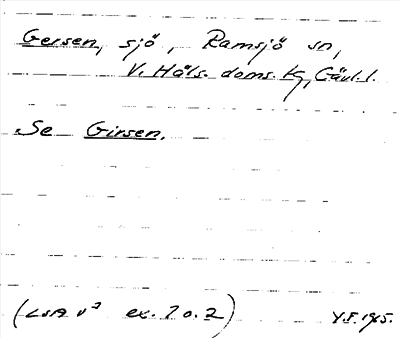 Gersen, sjö, Ramsjö sn,
V. Häls. doms. kg, Gävl. l.
Se Girsen.
(LSA v³ ex. 1 o. 2) Y.F. 1965.